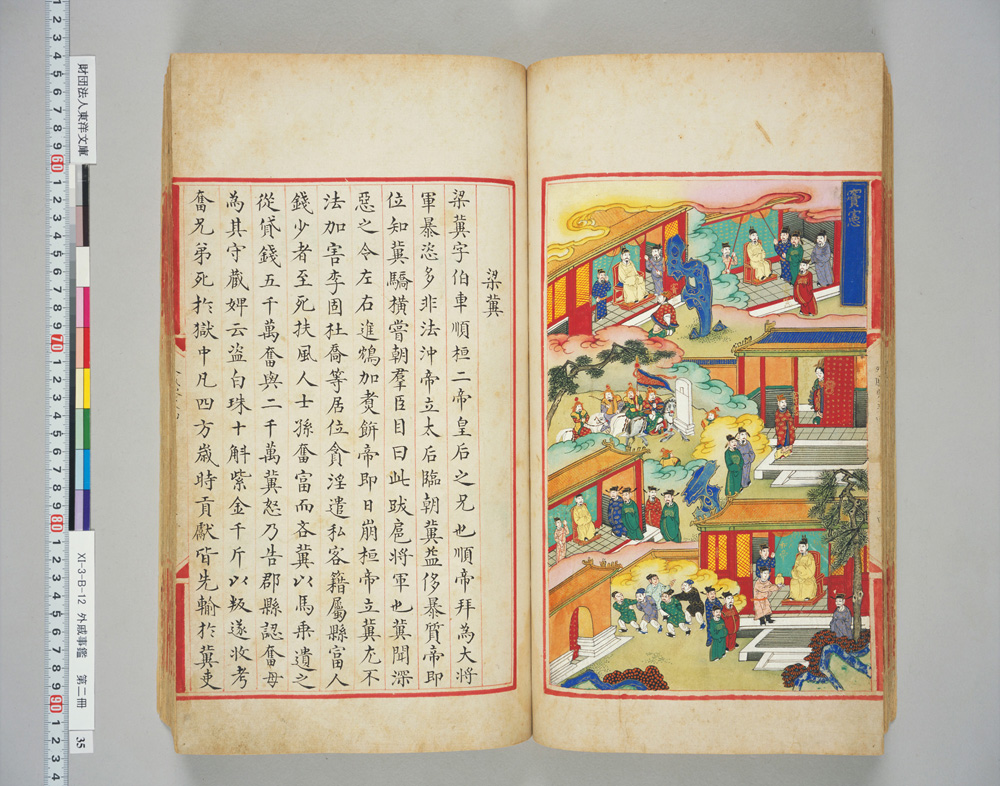 竇憲
梁冀
梁冀字伯車順桓二帝皇后之兄也順帝拜為大將
軍暴恣多非法沖帝立太后臨朝冀益侈暴質帝即
位知冀驕橫嘗朝羣臣目曰此跋扈將軍也冀聞深
惡之令左右進鴆加煑餅帝即日崩桓帝立冀尤不
法加害李固杜喬等居位貪淫遣私客籍屬縣富人
錢少者至死扶風人士孫奮富而吝冀以馬乘遺之
從貸錢五千萬奮與二千萬冀怒乃告郡縣認奮母
為其守藏婢云盜白珠十斛紫金千斤以叛遂收考
奮兄弟死於獄中凡四方歲時貢獻皆先輸於冀吏
財団法人東洋文庫
XI-3-B-12 外戚事鑑 第二冊
35
1 2 3 4 5 6 7 8 9 60 1 2 3 4 5 6 7 8 9 70 1 2 3 4 5 6 7 8 9 80 1 2 3 4 5 6 7 8 9 90 1 2 3 4